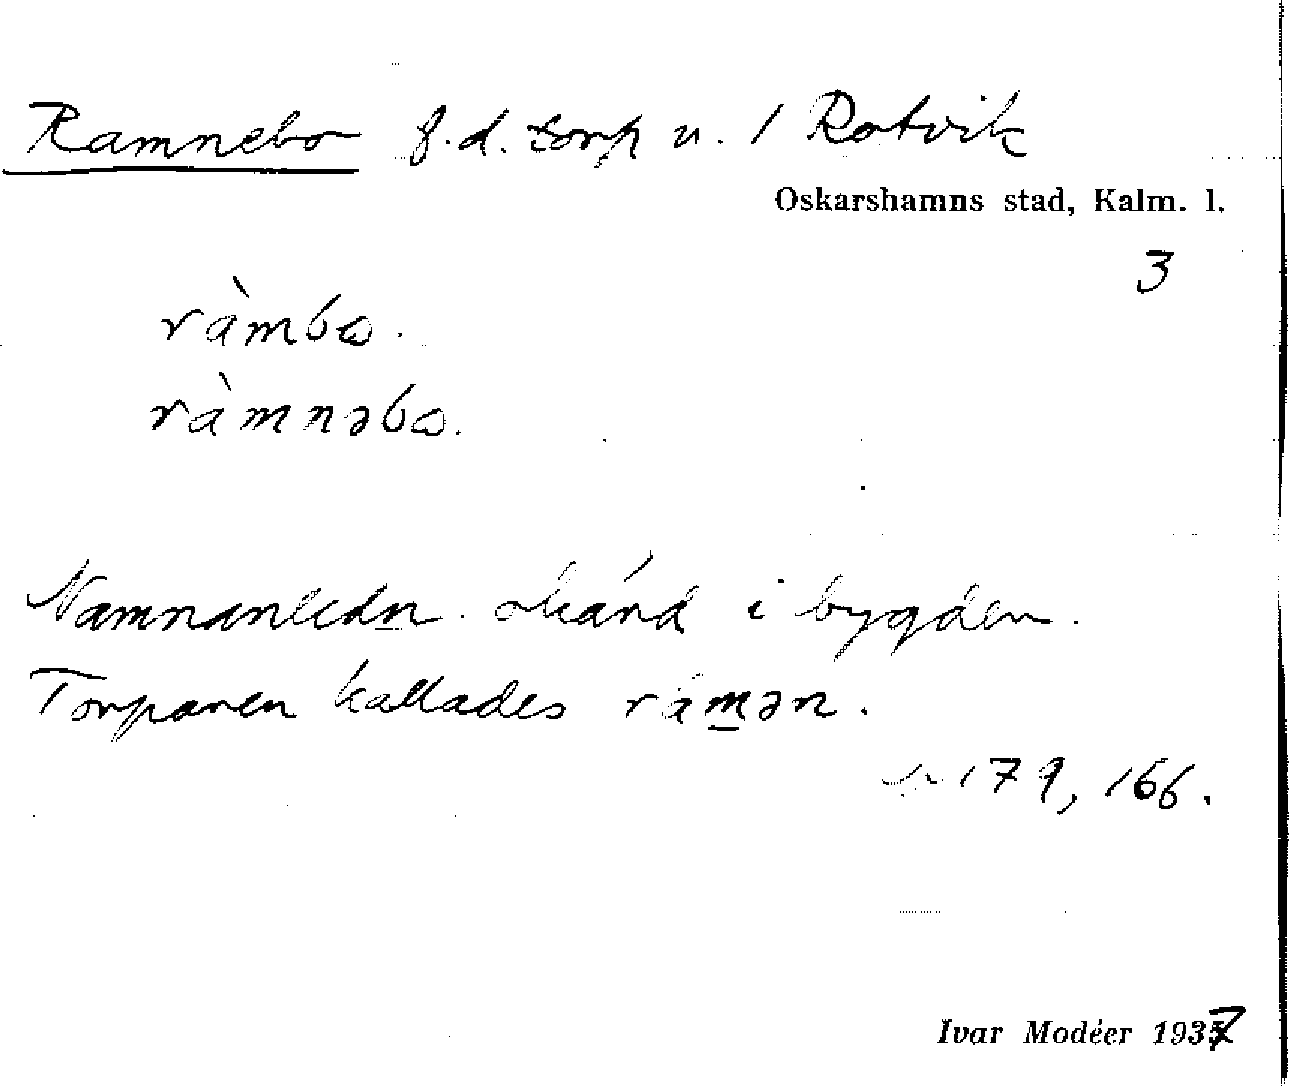 Ramnebo f.d. torp u. 1 Rotvik
Oskarshamns stad, Kalm. l.
3
ràmbɷ.
ràmnəbɷ.
Namnanledn. okänd i bygden.
Torparen kallades rámən.
179, 166.
Ivar Modéer 1937